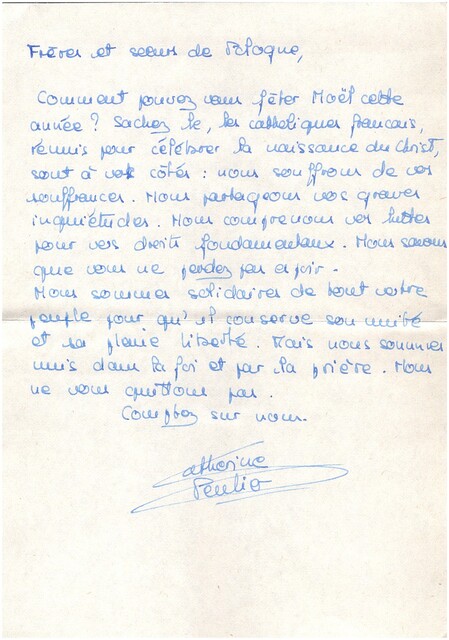 Frères et sœurs de Pologne,
Comment pouvez vous fêter Noël cette
année ? Sachez le, les catholiques français,
réunis pour célébrer la naissance du Christ,
sont à vos côtés : nous souffrons de vos
souffrances. Nous partageons vos graves
inquiétudes. Nous comprenons vos luttes
pour vos droits fondamentaux. Nous savons
que vous ne perdez pas espoir.
Nous sommes solidaires de tout votre
peuple pour qu'il conserve son unité
et sa pleine liberté. Mais nous sommes
unis dans la foi et par la prière. Nous
ne vous quittons pas.
Comptez sur nous.
Catherine